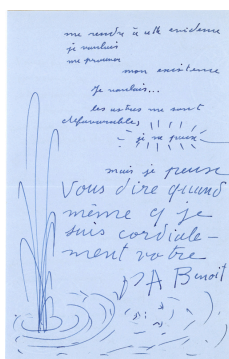 me rendre à cette evidence
je voulais
me prouver
mon existence
Je voulais...
les astres me sont
défavorables
je ne peux
mais je peux
Vous dire quand
même q je
suis cordiale-
ment votre
PA Benoit